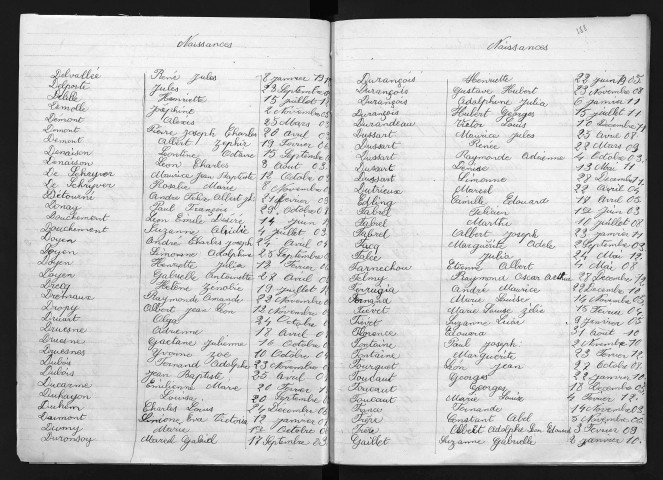 Naissances
Delvallée René Jules 8 janvier
Delporte Jules 23 Septembre
Delille Henriette 15 juillet
Joséphine 2 Novembre
Demont Alexis 25 Mars 03
Pierre Joseph Charles 20 Avril
Dement Albert Zéphir 19 Fevrier 06
Denaison Léontine Octave 15 Septembre
Denaison Léon Charles 3 Avril 03
De Schryver Maurice Jean Baptiste 12 Octobre
De Schryver Rosalie Marie 8 Novembre
Détourné André Félix Albert 21 fevrier 09
Paul François 29 Octobre
Douchement Léon Emile Désiré 14 juin
Douchement Suzanne 4 juillet 09
Doyen André Charles Joseph 24 Avril
Doyen Simonne Adolphe 23 Septembre
Doyen Henriette Julia 13 Fevrier
Doyen Gabrielle Antoinette 18 Avril
Hélène Zénobie 19 juillet
Raymonde Amande 22 Novembre
Dropy Albert Jean Léon 13 Novembre
Druart Olga 24 Octobre
Druesne Adrienne 18 Avril
Druesne Gaetane Julienne 16 Octobre
Druesnes Yvonne Zoé 10 Octobre 04
Dubois Fernand Adolphe 23 Novembre
Dubois Jean Baptiste 25 Avril 04
Ducarme Emilienne Marie 20 Fevrier
Duhayon Louisa 20 Septembre
Duhem Charles Louis 24 Décembre 08
Dumont Simone Eva Victoria 12 janvier
Dumy Marie 12 Octobre
Duronsoy Marcel Gabriel 17 Septembre 03
188
Naissances
Durançois Henriette 22 juin 05
Durançois Gustave Hubert 23 Novembre 08
Durançois Adolphine Julia 6 janvier 11
Durançois Hubert Georges 15 juillet 11
Durandeau Victor 12 Décembre
Dussart Maurice Jules 25 Avril 08
Dussart Renée 22 Mars 09
Dussart Raymonde Adrienne 4 Octobre 03
Dussart Denise 13 Mai 11
Dussart Simonne 29 Decembre 11
Dutrieux Marcel 22 Avril 04
Edling Camille Edouard 18 Avril 05
Fabret 12 juin 03
Fabret Marthe 11 juillet 08
Fabret Albert Joseph 23 janvier
Facq Marguerite Adèle 2 Septembre 09
Falce Julia 24 Mai 12
Farnechon Etienne Albert 4 Mai 08
Felmy Raymond Oscar Arthur 7 Decembre
Ferrugia André Maurice 22 Decembre
Marie Louise 14 Novembre 05
Fievet Marie Louise Zélie 15 Fevrier 04
Fievet Suzanne 9 janvier 05
Florence 31 Août 10
Fontaine Paul Joseph 2 Novembre 10
Fontaine Marguerite 23 Fevrier 12
Fourquet Léon Jean 22 Octobre 08
Foucaut Georges 22 janvier
Foucaut Georges 18 Décembre 05
Foucaut Marie Louise 4 Fevrier 12
France Fernande 14 Novembre 03
Frère Constant Abel 5 Novembre 06
Frère Albert Adolphe Léon Edouard 3 Fevrier 09
Gaillet Suzanne Gabrielle 2 janvier 10